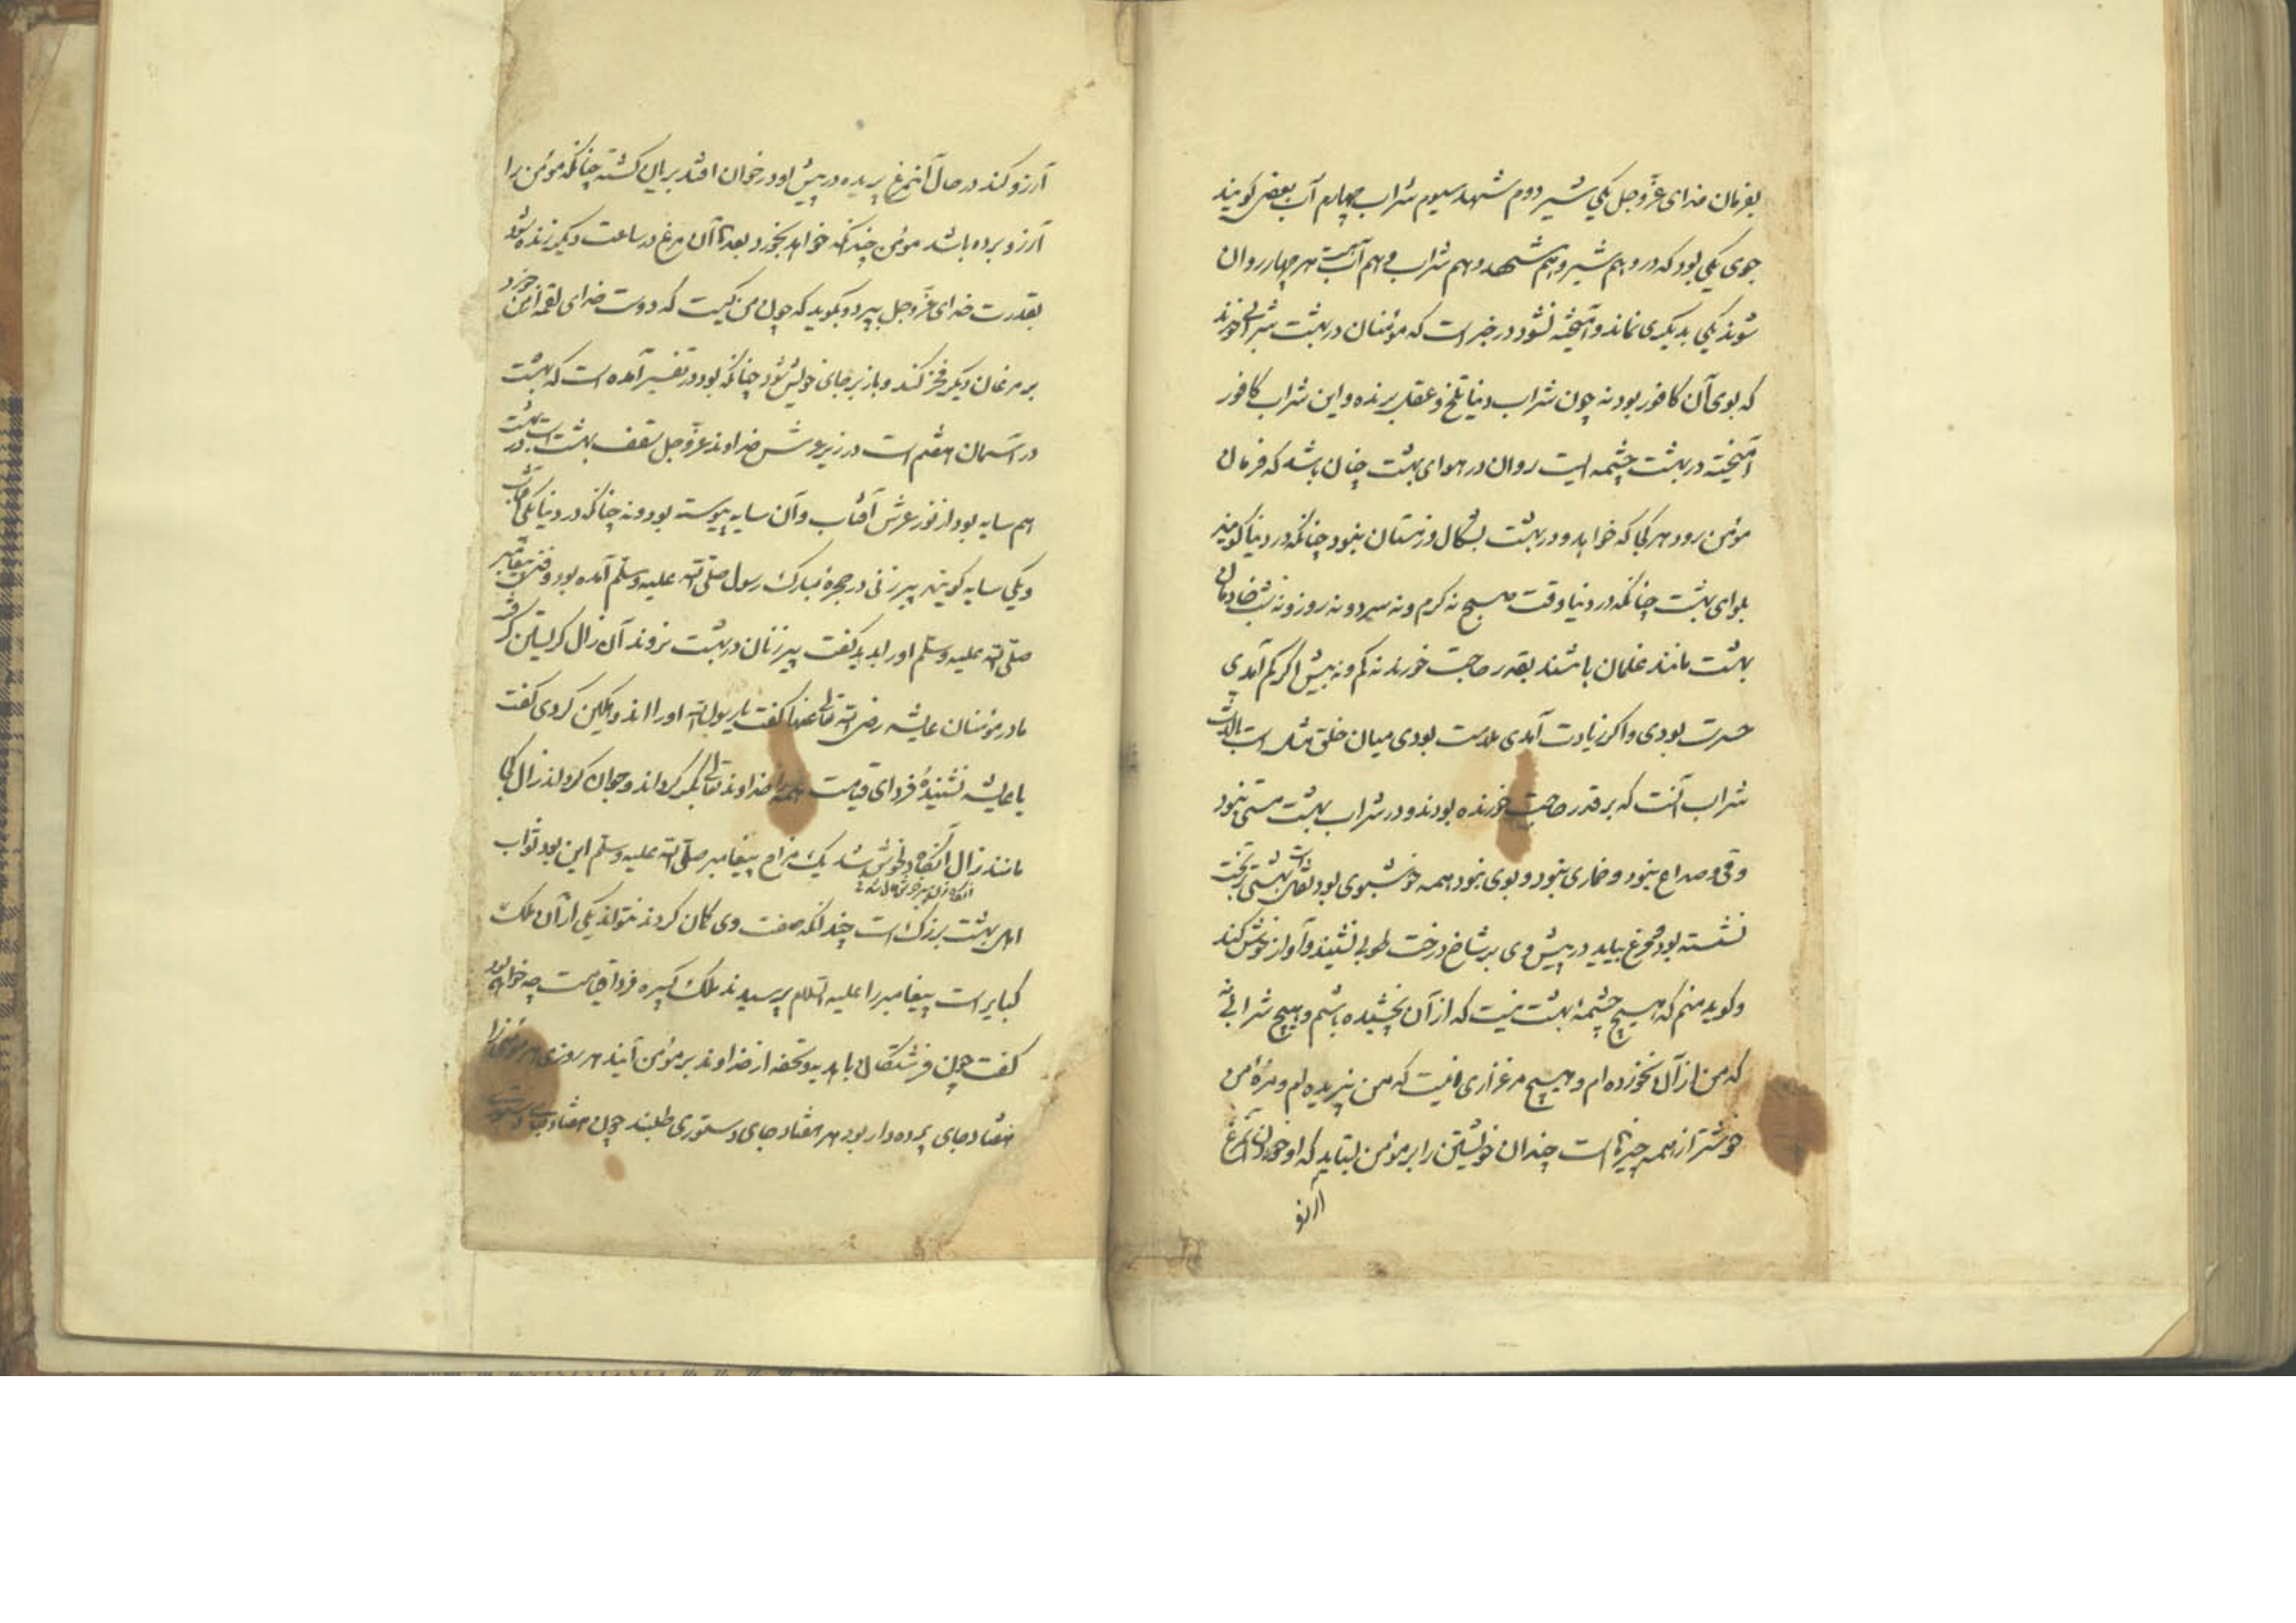 بفرمان خدای عزّوجل یکی شیر دوم شهد سیوم شراب چهارم آب بعضی کویند
جوی یکی بود که درو هم شیر و هم شهد و هم شراب و هم آب هر چهار روان
شوند یکی بدیکری نماند و آمیخته نشود در خبر است که مؤمنان در بهشت شرابی خورند
که بوی آن کافور بود نه چون شراب دنیا تلخ و عقل برنده و این شراب کافور
آمیخته در بهشت چشمه ایست روان در هوای بهشت چنان باشد که فرمان
مؤمن رود هر کجا که خواهد و در بهشت بشکال و زمستان نبود چنانکه در دنیا کویند
هوای بهشت چنانکه در دنیا وقت صبح نه کرم و نه سرد و نه روز و نه شب خادمان
بهشت مانند غلمان باشند بقدر حاجت خورند نه کم و نه بیش اکر کم آمدی
حسرت بودی و اکر زیادت آمدی ملامت بودی میان خلق مثل است
شراب آنست که بر قدر حاجت خورنده بود و در شراب بهشت مستی نبود
و قی و صداع نبود و خماری نبود و بوی نبود همه خوشبوی بود بهشتی بر تخت
نشسته بود مرغ بیاید در پیش وی بر شاخ درخت طوبی نشیند و آواز خوش کند
و کوید منم که هیچ چشمهٔ بهشت نیست که از آن نچشیده باشم و هیچ شرابی نه
که من از آن نخورده ام و هیچ مرغزاری نیست که من نپریده ام و مزهٔ من
خوشتر از همه چیزها است چندان خویشتن را بر مؤمن بستاید که او خوردن آنمرغ
آرزو
آرزو کند در حال آنمرغ پریده در پیش او در خوان افتد بریان کشته چنانکه مؤمن را
آرزو برده باشد مؤمن چندانکه خواهد بخورد بعده آن مرغ در ساعت دیکر زنده شود
بقدرت خدای عزّوجل بپرد و بکوید که چون من کیست که دوست خدای لقمه از من خورد
بر مرغان دیکر فخر کند و باز بر جای خویش شود چنانکه بود در تفسیر آمده است که بهشت
در آسمان هفتم است در زیر عرش خداوند عزّوجل سقف بهشت است در بهشت
هم سایه بود از نور عرش آفتاب و آن سایه پیوسته بود و نه چنانکه در دنیا یکی آفتاب
و یکی سایه کویند پیرزنی در حجرهٔ مبارک رسول صلی الله علیه وسلم آمده بود وقتی پیغامبر
صلی الله علیه وسلم اورا بدید کفت پیر زنان در بهشت نروند آن زال کریستن کرفت
مادر مؤمنان عایشه رضی الله تعالی عنها کفت یا رسول الله اورا اندوهکین کردی کفت
یا عایشه نشنیدهٔ فردای قیامت همه را خداوند تعالی بکر کرداند و جوان کرداند زال کجا
مانند زال آنکاه دلخوش شد یک مزاح پیغامبر صلی الله علیه وسلم این بود ثواب
اهل بهشت بزرک است چندانکه صفت وی کان کردند نتواند یکی از آن ملک
کبایر است پیغامبر را علیه السلام پرسیدند ملک کبیره فردا قیامت چه خواهد بود
کفت چون فرشتکان با هدیه و تحفه از خداوند بر مؤمن آیند هر روزی هر مؤمن را
هفتاد جای پرده دار بود هر هفتاد جای دستوری طلبند چون هفتاد جای دستوری